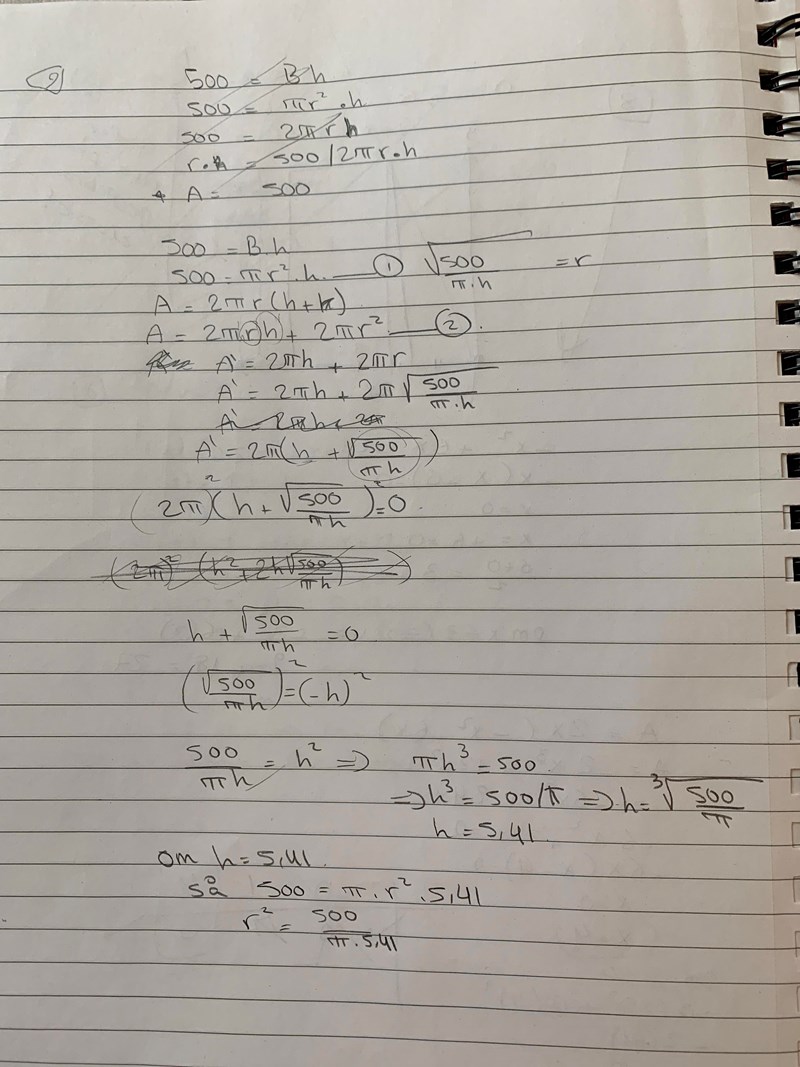 9
500 = B h
500 = πr² · h
500 = 2πr h
r·A = 500 / 2πr·h
A = 500
500 = B·h
500 = πr²·h ① √(500/π·h) = r
A = 2πr(h+r)
A = 2πrh + 2πr² ②.
A' = 2πh + 2πr
A' = 2πh + 2π√(500/π·h)
A' = 2πh + 2π
A' = 2π(h + √(500/πh))
(2π)²(h + √(500/πh))² = 0.
(2π)² (h² + 2h√(500/πh))
h + √(500/πh) = 0
(√(500/πh))² = (-h)²
500/πh = h² => πh³ = 500
=> h³ = 500/π => h = ³√(500/π)
h = 5,41
om h = 5,41
så 500 = π·r²·5,41
r² = 500/π·5,41